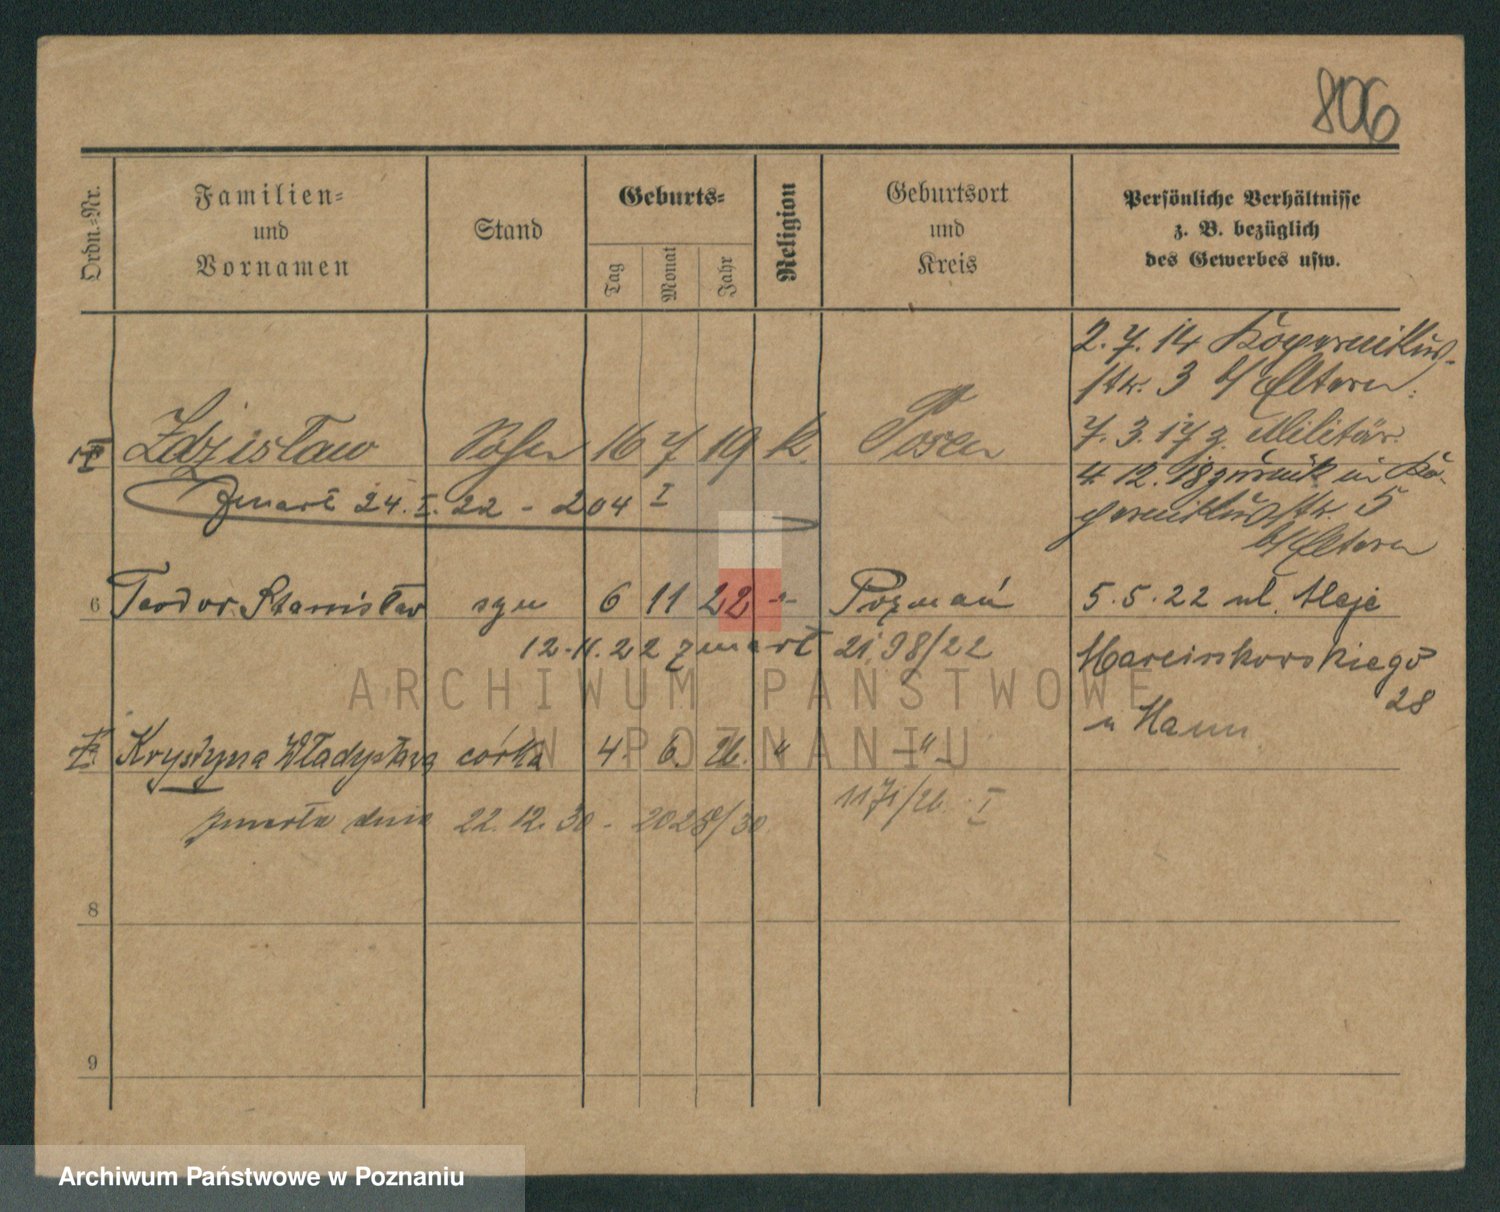 806
Ordn.-Nr.
Familien-
und
Vornamen
Stand
Geburts-
Tag
Monat
Jahr
Religion
Geburtsort
und
Kreis
Persönliche Verhältnisse
z. B. bezüglich
des Gewerbes usw.
Zdzisław Sohn 16 7 19 k. Posen
zmarł 24. I. 22 - 204 I
2. 7. 14 Kopernikus-
str. 3 b/ Eltern.
7. 3. 17 z. Militär.
4 12. 18 zurück in Ko-
pernikusstr. 5
b/ Eltern
6 Teodor Stanisław syn 6 11 22 -"- Poznań
12.11.22 zmarł 2198/22
5.5.22 ul. Aleje
Marcinkowskiego
28
u Mann
Krystyna Władysława córka 4. 6. 26. " -"-
zmarła dnia 22.12.30 - 2028/30
1171/26 I
8
9
ARCHIWUM PAŃSTWOWE
W POZNANIU
Archiwum Państwowe w Poznaniu